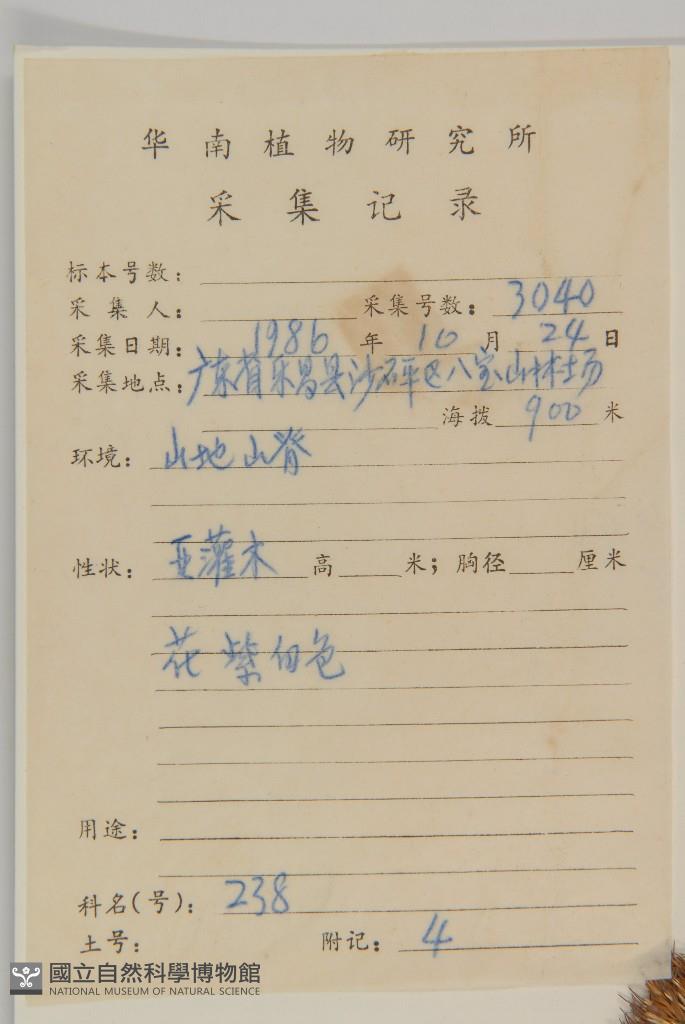 华南植物研究所
采集记录
标本号数：
采集人： 采集号数：3040
采集日期：1986年10月24日
采集地点：广东省乐昌县沙坪区八宝山林场
海拨 900 米
环境：山地山脊
性状：亚灌木 高 米；胸径 厘米
花紫白色
用途：
科名(号)：238
土号： 附记：4
國立自然科學博物館
NATIONAL MUSEUM OF NATURAL SCIENCE